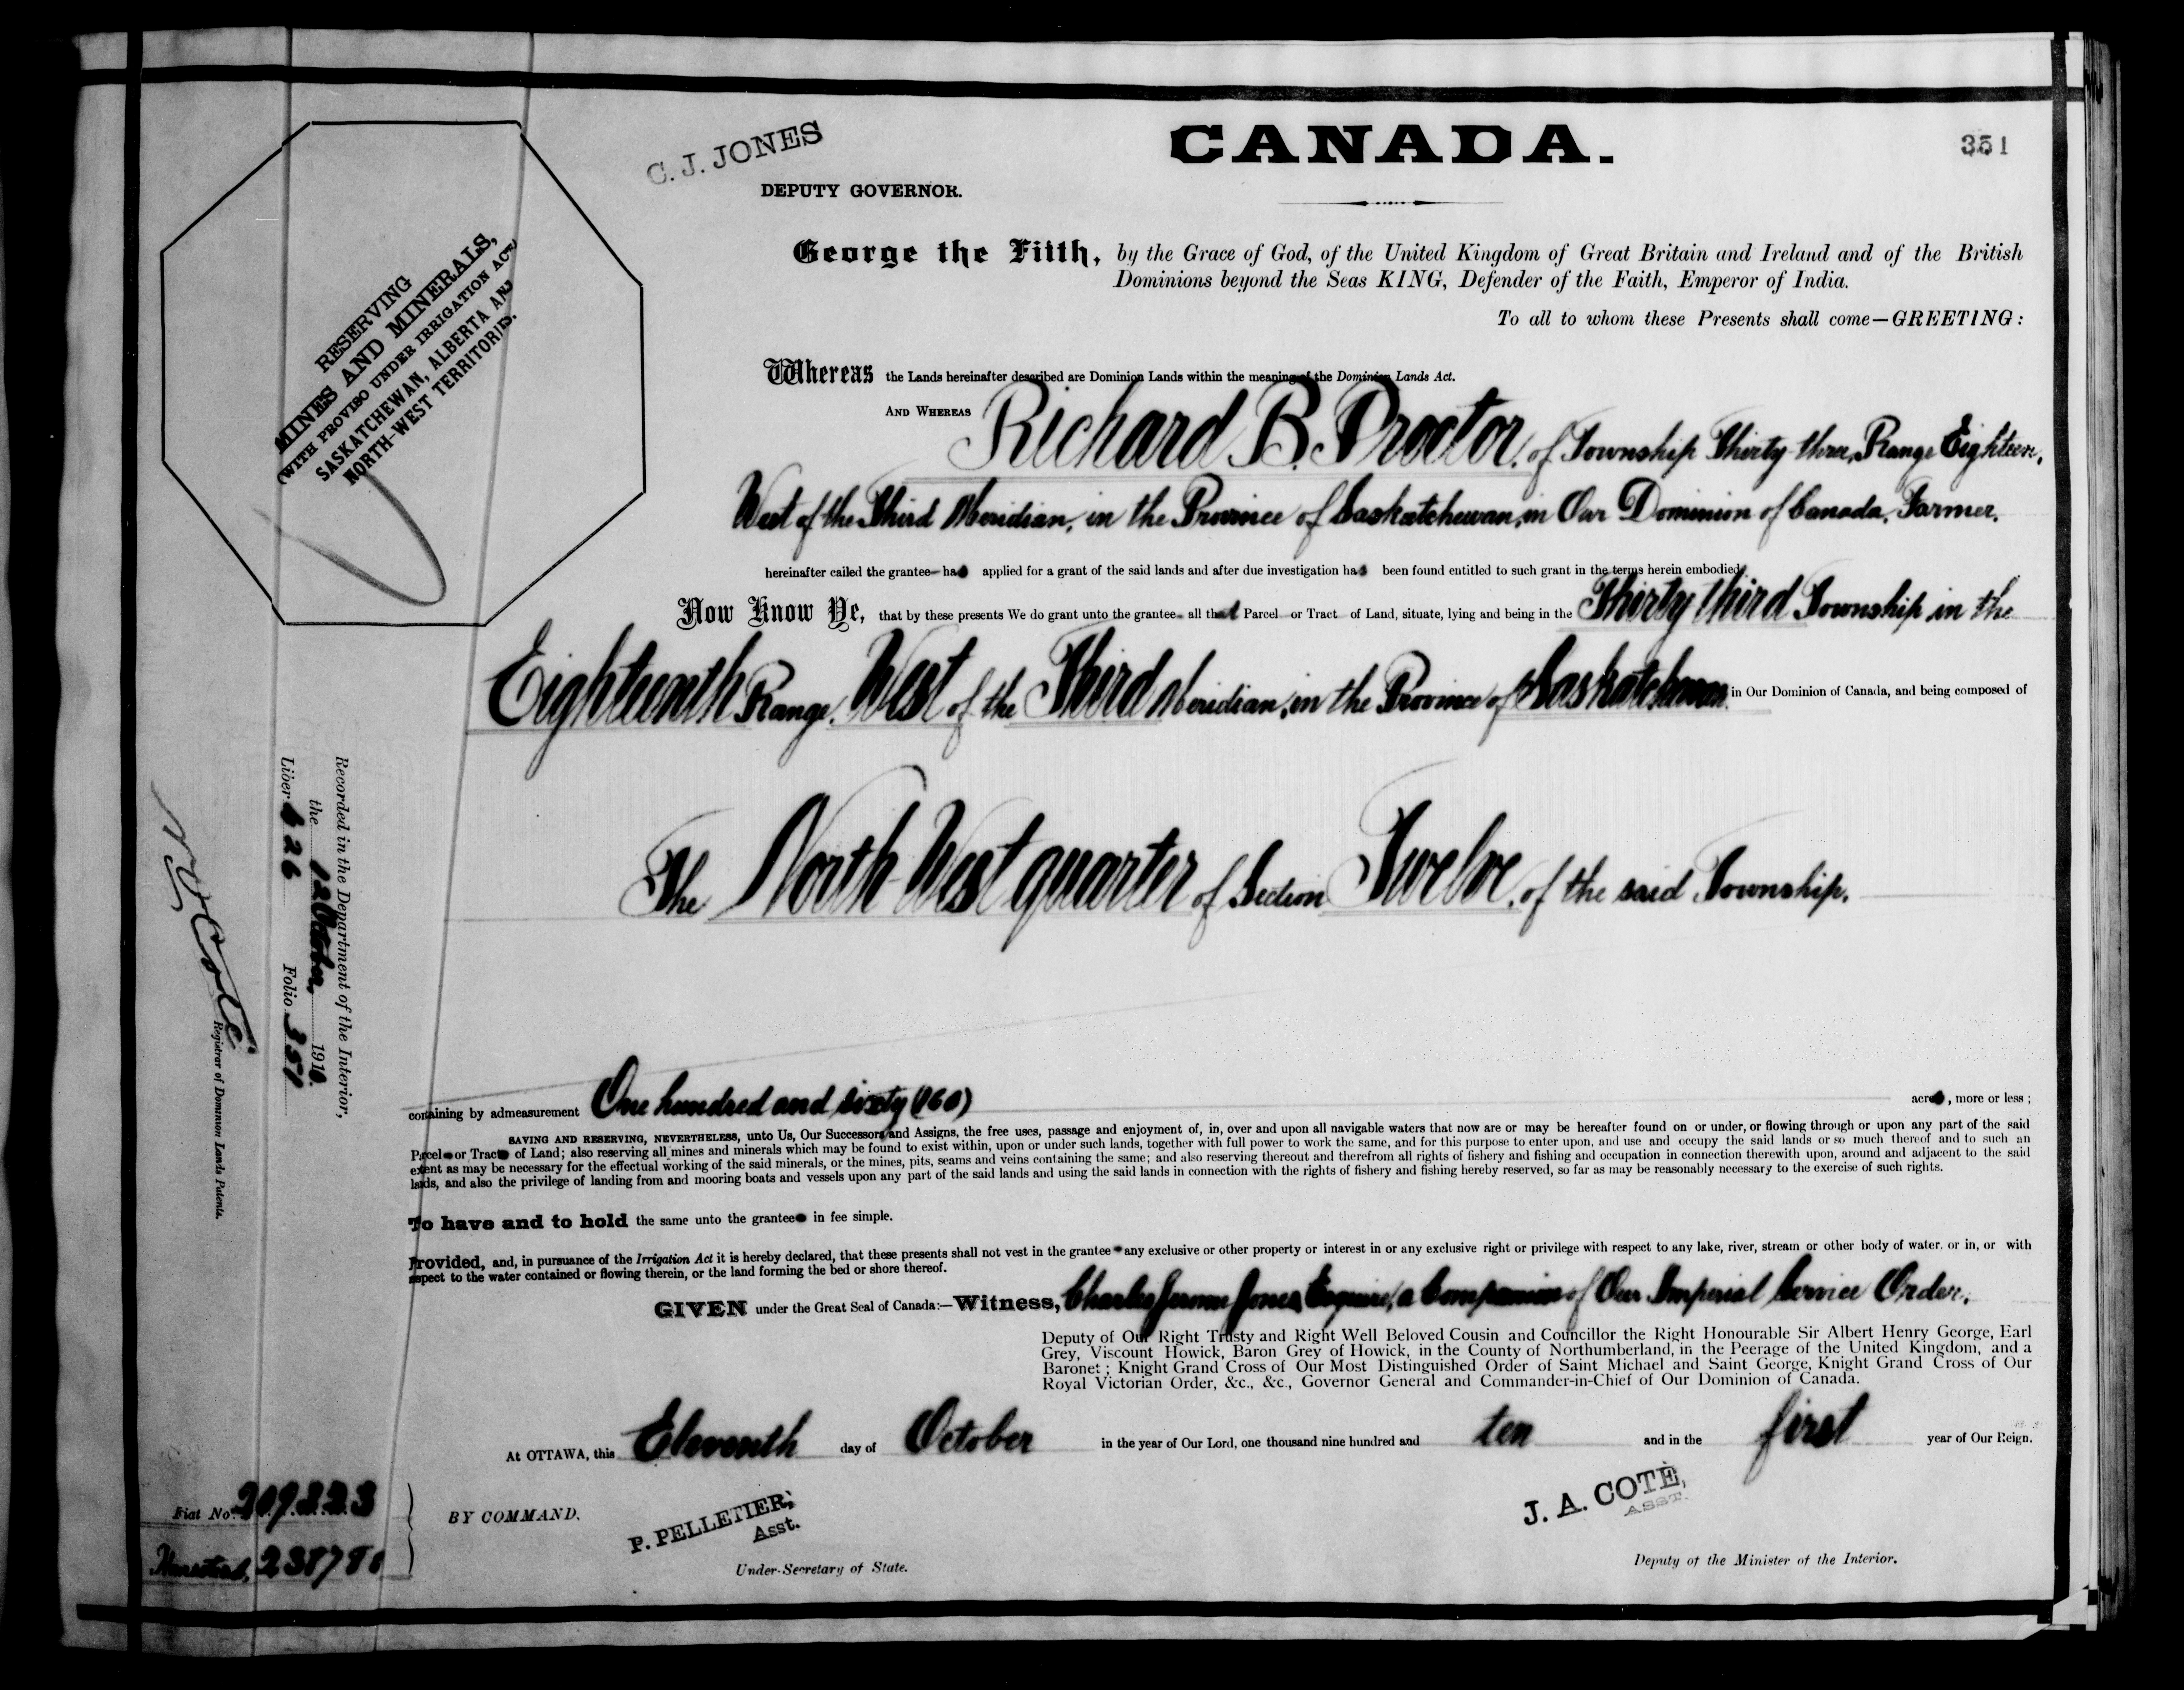 C. J. JONES
CANADA.
351
DEPUTY GOVERNOR.
RESERVING
MINES AND MINERALS,
(WITH PROVISO UNDER IRRIGATION ACT)
SASKATCHEWAN, ALBERTA AND
NORTH-WEST TERRITORIES.
George the Fifth, by the Grace of God, of the United Kingdom of Great Britain and Ireland and of the British
Dominions beyond the Seas KING, Defender of the Faith, Emperor of India.
To all to whom these Presents shall come—GREETING:
Whereas the Lands hereinafter described are Dominion Lands within the meaning of the Dominion Lands Act.
AND WHEREAS Richard B. Proctor, of Township Thirty-three, Range Eighteen,
West of the Third Meridian, in the Province of Saskatchewan, in Our Dominion of Canada, Farmer,
hereinafter called the grantee has applied for a grant of the said lands and after due investigation has been found entitled to such grant in the terms herein embodied.
Now Know Ye, that by these presents We do grant unto the grantee all that Parcel or Tract of Land, situate, lying and being in the Thirty third Township in the
Eighteenth Range, West of the Third Meridian, in the Province of Saskatchewan in Our Dominion of Canada, and being composed of
The North West quarter of Section Twelve, of the said Township.
containing by admeasurement One hundred and sixty (160) acres, more or less;
SAVING AND RESERVING, NEVERTHELESS, unto Us, Our Successors and Assigns, the free uses, passage and enjoyment of, in, over and upon all navigable waters that now are or may be hereafter found on or under, or flowing through or upon any part of the said
Parcel or Tract of Land; also reserving all mines and minerals which may be found to exist within, upon or under such lands, together with full power to work the same, and for this purpose to enter upon, and use and occupy the said lands or so much thereof and to such an
extent as may be necessary for the effectual working of the said minerals, or the mines, pits, seams and veins containing the same; and also reserving thereout and therefrom all rights of fishery and fishing and occupation in connection therewith upon, around and adjacent to the said
lands, and also the privilege of landing from and mooring boats and vessels upon any part of the said lands and using the said lands in connection with the rights of fishery and fishing hereby reserved, so far as may be reasonably necessary to the exercise of such rights.
To have and to hold the same unto the grantee in fee simple.
Provided, and, in pursuance of the Irrigation Act it is hereby declared, that these presents shall not vest in the grantee any exclusive or other property or interest in or any exclusive right or privilege with respect to any lake, river, stream or other body of water, or in, or with
respect to the water contained or flowing therein, or the land forming the bed or shore thereof.
GIVEN under the Great Seal of Canada:—Witness, Charles Jerome Jones, Esquire, a Companion of Our Imperial Service Order,
Deputy of Our Right Trusty and Right Well Beloved Cousin and Councillor the Right Honourable Sir Albert Henry George, Earl
Grey, Viscount Howick, Baron Grey of Howick, in the County of Northumberland, in the Peerage of the United Kingdom, and a
Baronet; Knight Grand Cross of Our Most Distinguished Order of Saint Michael and Saint George, Knight Grand Cross of Our
Royal Victorian Order, &c., &c., Governor General and Commander-in-Chief of Our Dominion of Canada.
At OTTAWA, this Eleventh day of October in the year of Our Lord, one thousand nine hundred and ten and in the first year of Our Reign.
BY COMMAND.
P. PELLETIER,
Asst.
Under-Secretary of State.
J. A. COTÉ,
ASST.
Deputy of the Minister of the Interior.
Recorded in the Department of the Interior,
the 12 October, 1910.
Liber 626 Folio 351
Coté
Registrar of Dominion Lands Patents.
Fiat No. 209223
Homestead,